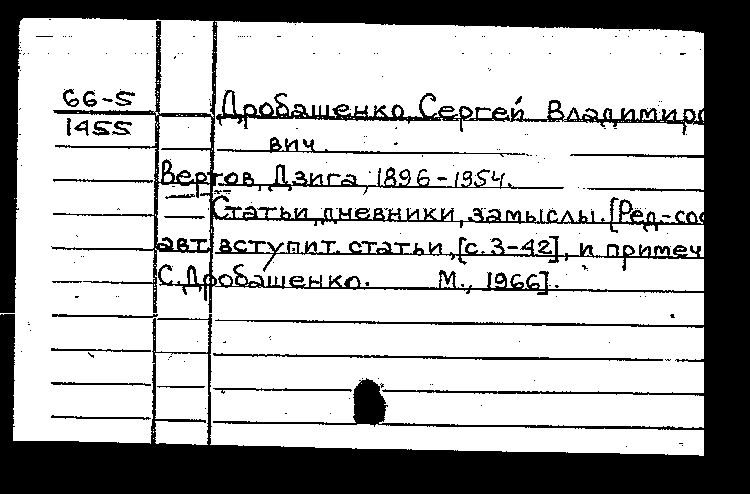 66-5
1455
Дробашенко, Сергей Владимиро
вич.
Вертов, Дзига, 1896-1954.
Статьи, дневники, замыслы. [Ред.-сос
авт. вступит. статьи, [с. 3-42], и примеч
С. Дробашенко. М., 1966].